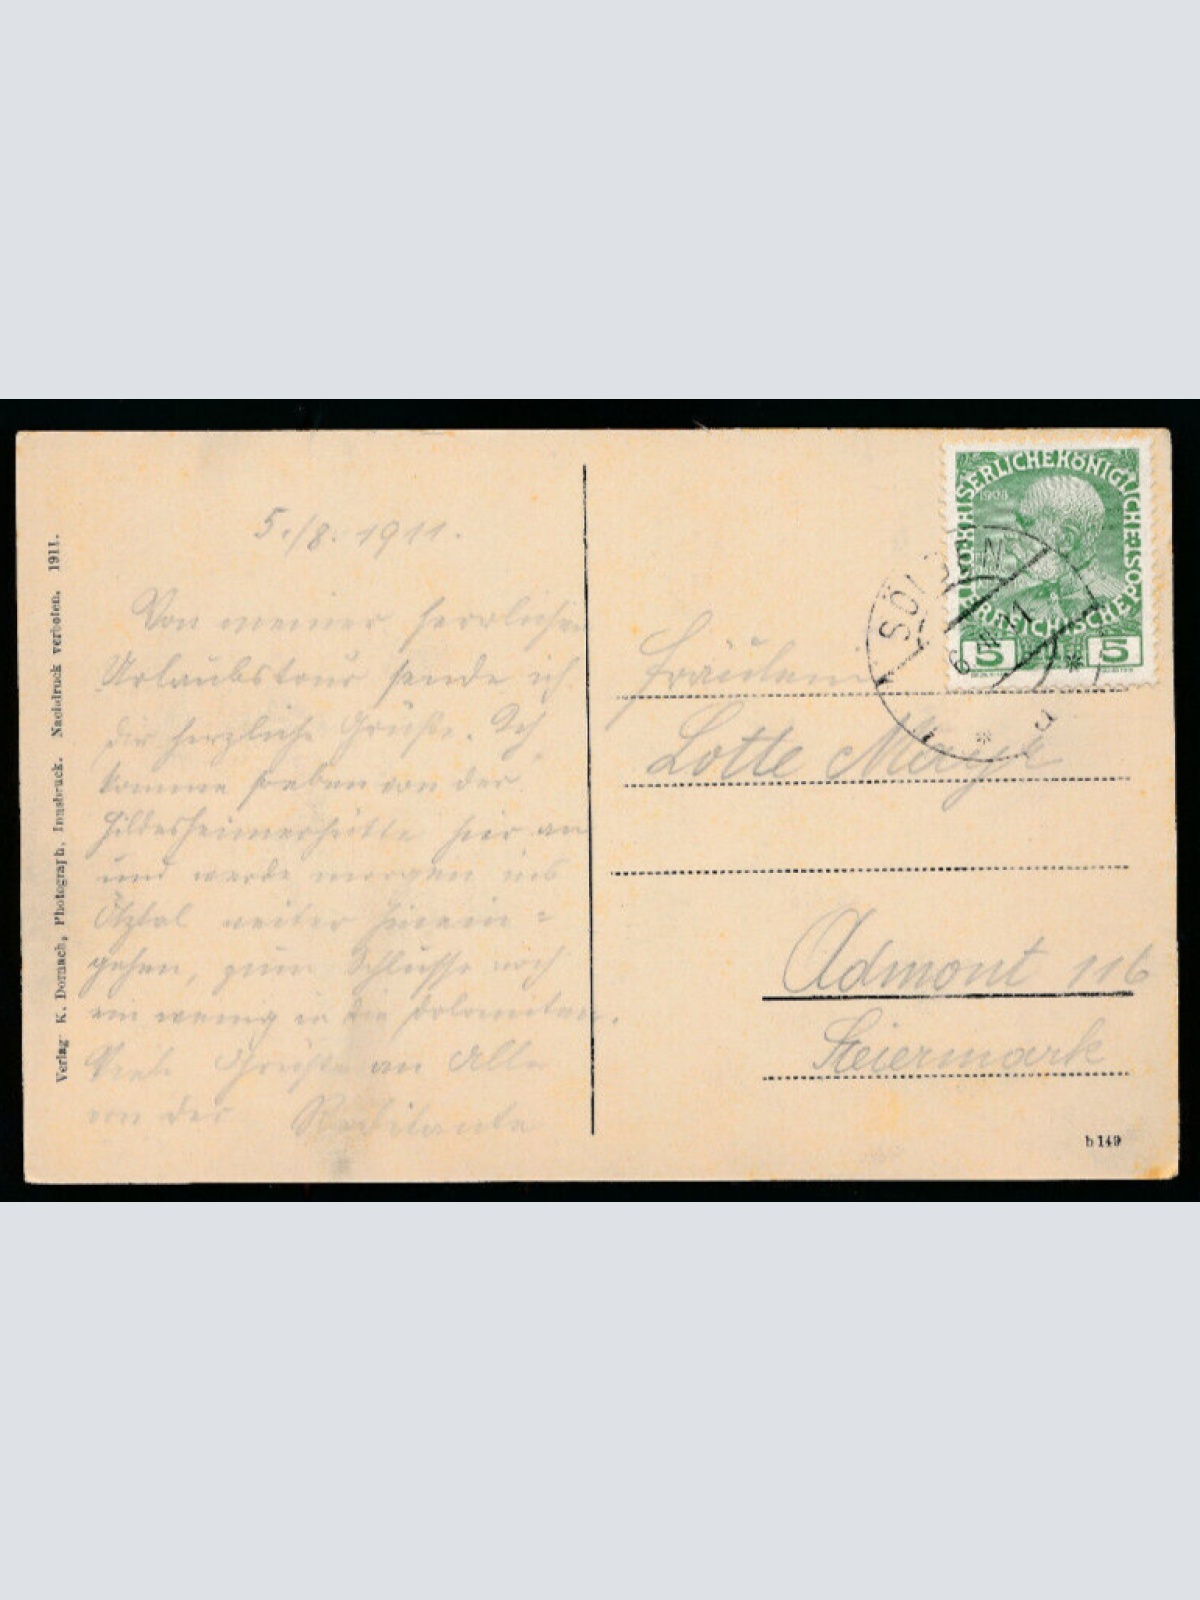 Verlag: K. Dornach, Photograph, Innsbruck. Nachdruck verboten. 1911.
5./8. 1911.
Von meiner herrlichen
Urlaubstour sende ich
dir herzliche Grüße. Ich
komme soeben von der
Hildesheimerhütte hier an
und werde morgen ins
Ötztal weiter hinein =
gehen, zum Schlusse noch
ein wenig in die Dolomiten.
Viele Grüße an Alle
von der
KAISERLICHE KÖNIGLICHE ÖSTERREICHISCHE POST
1908
5 5
SÖLDEN
6 VIII 11
Fräulein
Lotte Mayr
Admont 116
Steiermark
b 149